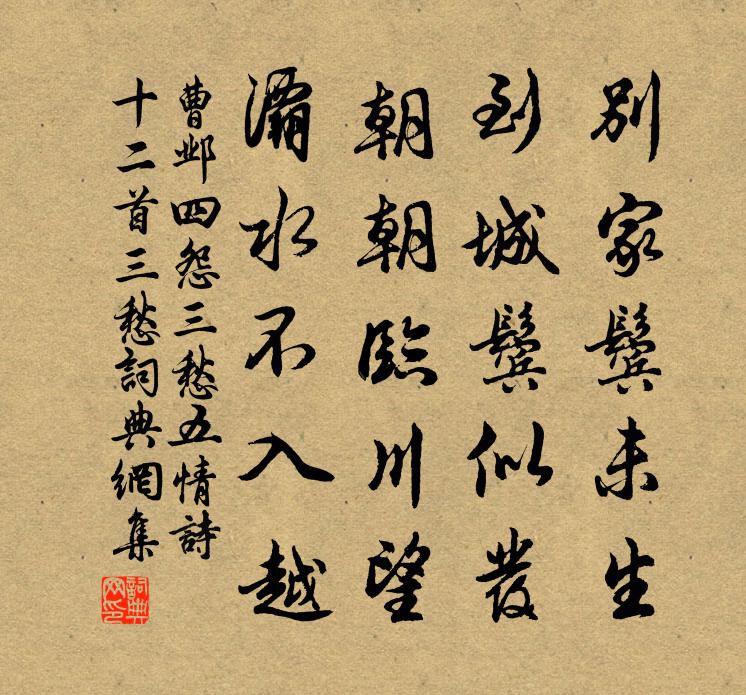 別家鬢未生
到城鬢似發
朝朝臨川望
灞水不入越
曹鄴四怨三愁五情詩
十二首三愁詞典網集
詞典
网印